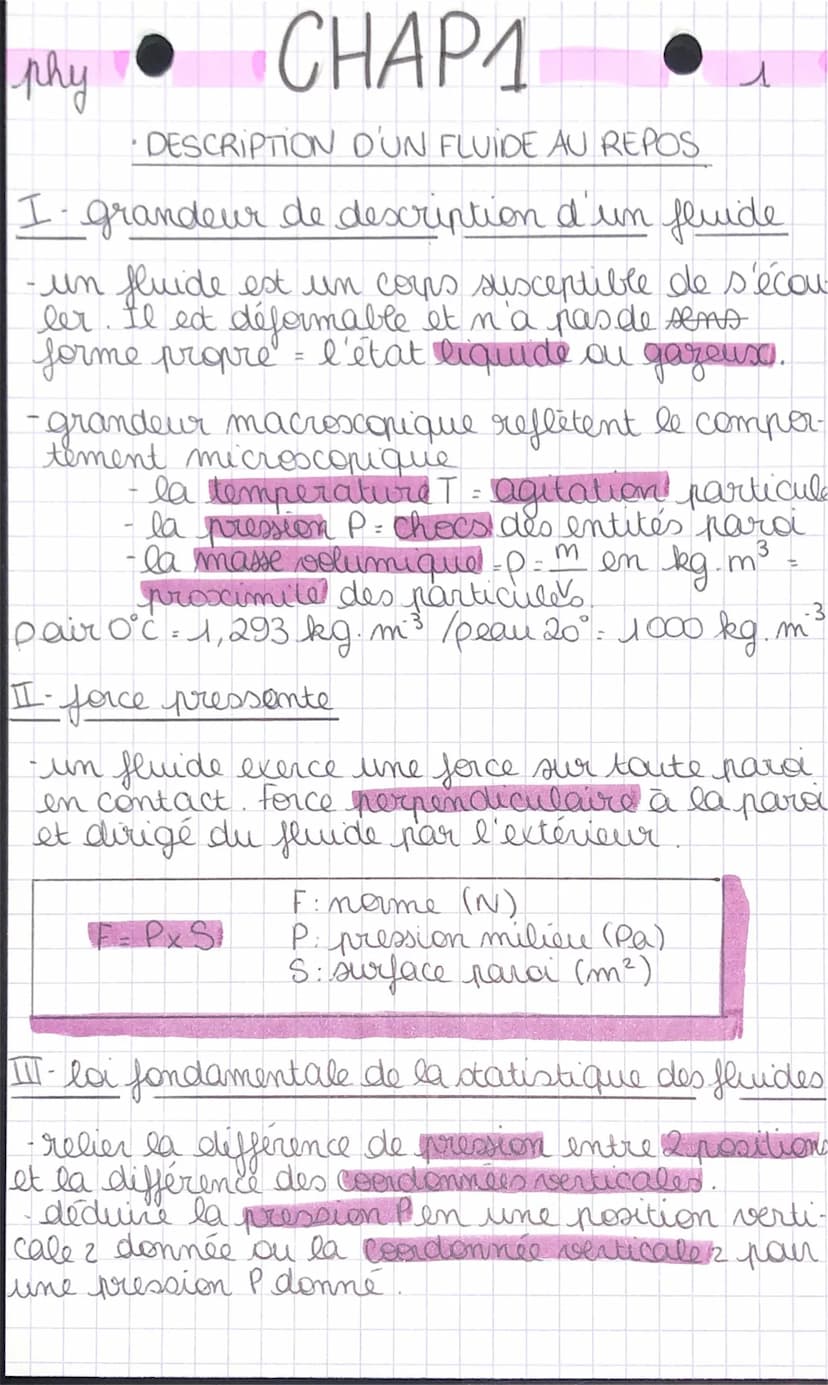 phy CHAP1 1
· DESCRIPTION D'UN FLUIDE AU REPOS
I - grandeur de description d'un fluide
- un fluide est un corps susceptible de s'écou-
ler. Il est déformable et n'a pas de sens
forme propre = l'état liquide ou gazeux.
- grandeur macroscopique reflètent le compor-
tement microscopique
- la temperature T = agitation particule
- la pression P = chocs des entités paroi
- la masse volumique = ρ = m/V en kg.m³ =
proximité des particules
ρ air 0°C = 1,293 kg.m⁻³ / ρeau 20° = 1000 kg.m⁻³
II - force pressente
- un fluide exerce une force sur toute paroi
en contact. Force perpendiculaire à la paroi
et dirigé du fluide par l'extérieur.
F: norme (N)
F = P x S P: pression milieu (Pa)
S: surface paroi (m²)
III - loi fondamentale de la statistique des fluides
- relier la différence de pression entre 2 positions
et la différence des coordonnées verticales.
- déduire la pression P en une position verti-
cale z donnée ou la coordonnée verticale z pour
une pression P donné.